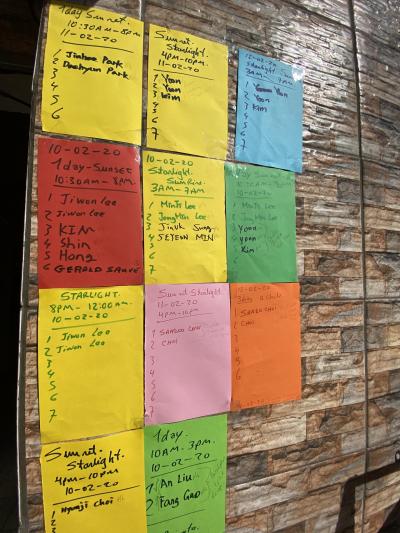 1day Sunset.
10:30AM-8PM
11-02-20
1 Jinhee Park
2 Daehyun Park
3
4
5
6
Sunset.
Starlight.
4PM-10PM.
11-02-20
1 Yoon
2 Yoon
3 Kim
4
5
6
7
Starlight
3AM-7AM
1 Yoon
2 Yoon
3 Kim
4
5
6
10-02-20
1day-Sunset
10:30AM-8PM.
1 Jiwon Lee
2 Jiwon Lee
3 KIM
4 Shin
5 Hong
6 GERALD
10-02-20
Starlight
Sunrise.
3AM-7AM
1 Minti Lee
2 JongMin Lee
3 Jiuk Sung
4 SEYEON MIN
5
6
7
10-02-20
1 Minti Lee
2 JongMin Lee
3 Yoon
4 Yoon
5 Kim
6
STARLIGHT.
8PM-12:00AM.
10-02-20
1 Jiwon Lee
2 Jiwon Lee
3
4
5
6
7
Sunset Starlight
11-02-20
4PM-10PM
1 CHOI
2 CHOI
3
4
5
6
7
1 CHOI
2 CHOI
3
4
5
6
Sunset.
Starlight.
4PM-10PM
10-02-20
1 Hyunji Choi
2
1day.
10AM. 3PM.
10-02-20
1 An Liu
2 Fang Guo